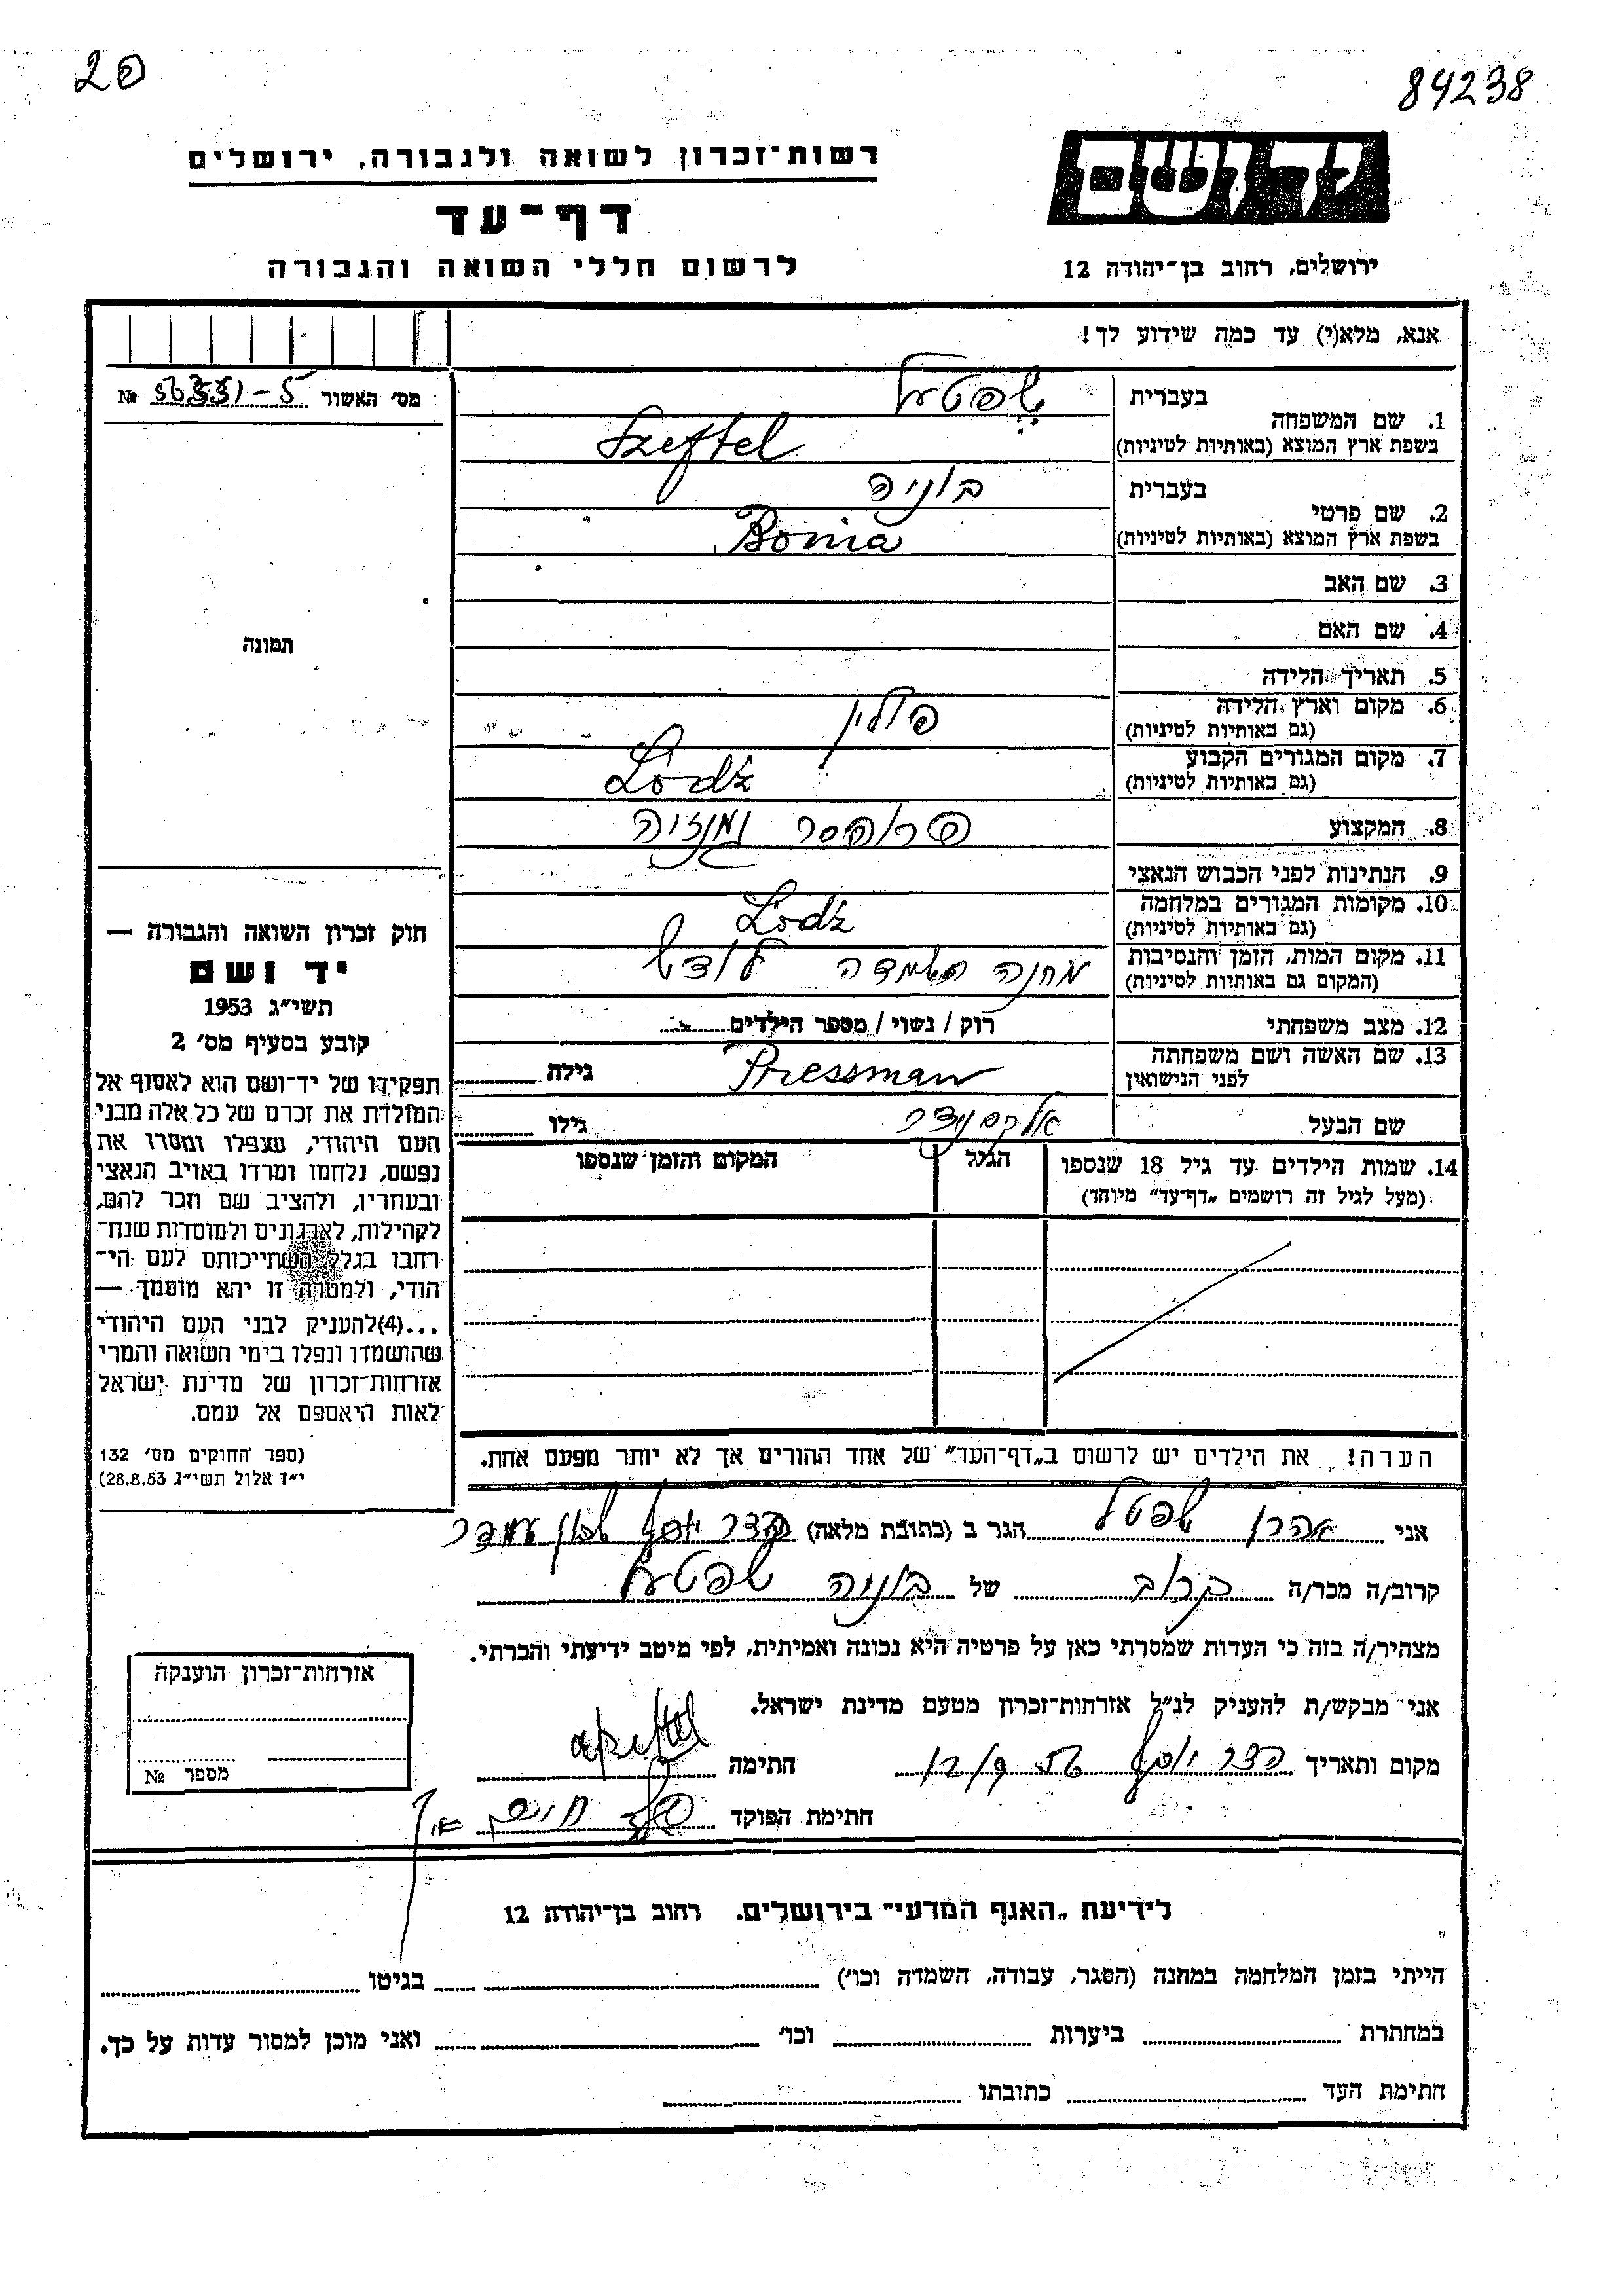 20
84238
יד ושם
רשות־זכרון לשואה ולגבורה, ירושלים
דף־עד
לרשום חללי השואה והגבורה
ירושלים, רחוב בן־יהודה 12
אנא, מלא(י) עד כמה שידוע לך!
מס׳ האשור № 5 -
1. שם המשפחה
בעברית שפטעל
בשפת ארץ המוצא (באותיות לטיניות) Szeftel
2. שם פרטי
בעברית בוניה
בשפת ארץ המוצא (באותיות לטיניות) Bonia
3. שם האב
4. שם האם
5. תאריך הלידה
6. מקום וארץ הלידה פולין
(גם באותיות לטיניות)
7. מקום המגורים הקבוע Lódź
(גם באותיות לטיניות)
8. המקצוע פרופסר גמנזיה
9. הנתינות לפני הכבוש הנאצי
10. מקומות המגורים במלחמה Lodź
(גם באותיות לטיניות)
11. מקום המות, הזמן והנסיבות מחנה השמדה לודש
(המקום גם באותיות לטיניות)
12. מצב משפחתי רוק / נשוי / מספר הילדים
13. שם האשה ושם משפחתה Pressman גילה
לפני הנישואין
שם הבעל אלכסנדר גילו
14. שמות הילדים עד גיל 18 שנספו הגיל המקום והזמן שנספו
(מעל לגיל זה רושמים „דף־עד״ מיוחד)
תמונה
חוק זכרון השואה והגבורה —
יד ושם
תשי״ג 1953
קובע בסעיף מס׳ 2
תפקידו של יד־ושם הוא לאסוף אל
המולדת את זכרם של כל אלה מבני
העם היהודי, שנפלו ומסרו את
נפשם, נלחמו ומרדו באויב הנאצי
ובעוזריו, ולהציב שם וזכר להם,
לקהילות, לארגונים ולמוסדות שנח־
רבו בגלל השתייכותם לעם הי־
הודי, ולמטרה זו יהא מוסמך —
...(4) להעניק לבני העם היהודי
שהושמדו ונפלו בימי השואה והמרי
אזרחות־זכרון של מדינת ישראל
לאות היאספם אל עמם.
(ספר החוקים מס׳ 132
י״ז אלול תשי״ג 28.8.53)
הערה! את הילדים יש לרשום ב„דף־העד״ של אחד ההורים אך לא יותר מפעם אחת.
אני אהרן שפטל הגר ב (כתובת מלאה) חצר יוסף שכון
קרוב/ה מכר/ה קרוב של בוניה שפטעל
מצהיר/ה בזה כי העדות שמסרתי כאן על פרטיה היא נכונה ואמיתית, לפי מיטב ידיעתי והכרתי.
אני מבקש/ת להעניק לנ״ל אזרחות־זכרון מטעם מדינת ישראל.
מקום ותאריך חצר יוסף 12/9 חתימה
חתימת הפוקד
אזרחות־זכרון הוענקה
מספר №
לידיעת „האגף המדעי״ בירושלים, רחוב בן־יהודה 12
הייתי בזמן המלחמה במחנה (הסגר, עבודה, השמדה וכו׳) בגיטו
במחתרת ביערות וכו׳ ואני מוכן למסור עדות על כך.
חתימת העד כתובתו